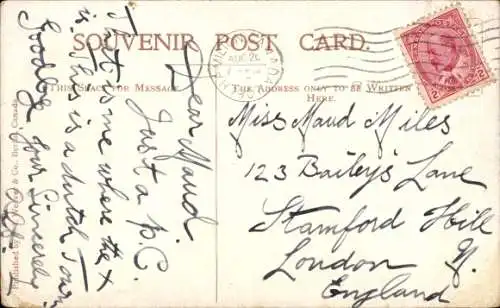 SOUVENIR POST CARD.
THIS SPACE FOR MESSAGE
THE ADDRESS ONLY TO BE WRITTEN
HERE.
Dear Maud
Just a p.C.
to
me where the x
is This is a dutch Town
Goodbye Yours Sincerely
Miss Maud Miles
123 Bailey's Lane
Stamford Hill
London N.
England
AUG
CANADA
2 2
Published by
& Co., Berlin, Canada.